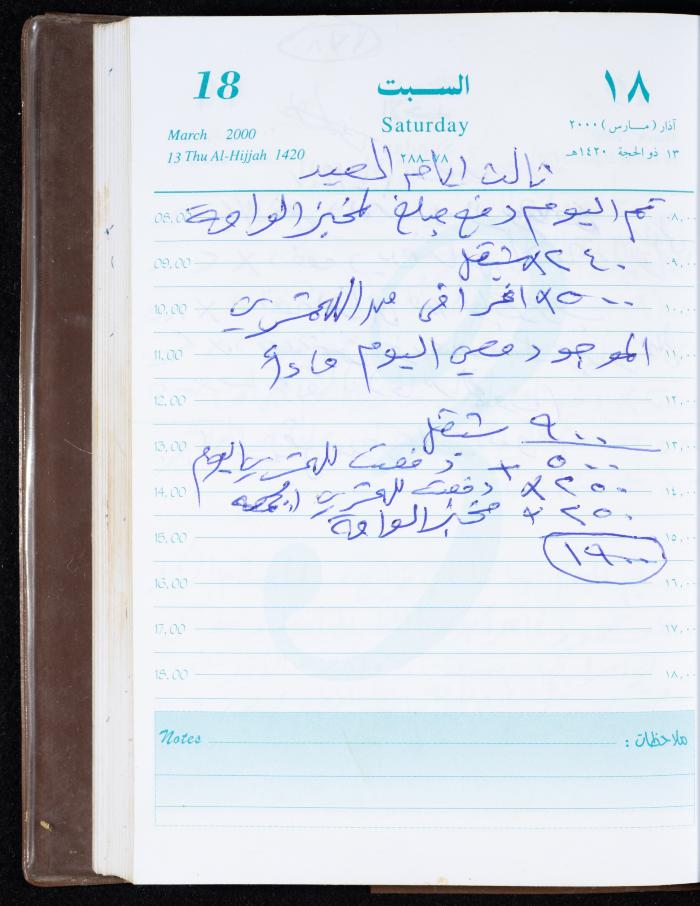 18 السبت ١٨
March 2000 Saturday آذار (مارس) ٢٠٠٠
13 Thu Al-Hijjah 1420 ٧٨-٢٨٨ ١٣ ذو الحجة ١٤٢٠هـ
ثالث ايام العيد
08.00 تم اليوم دفع مبلغ لمخبز الواحة ٠٨,٠٠
09.00 ٢٤٠ × شيقل ٠٩,٠٠
10.00 ٥٠٠٠ × ١٠,٠٠
11.00 الموجود معي اليوم مساءً ١١,٠٠
12.00 ١٢,٠٠
٩٠٠٠ شيقل
13.00 ٥٠٠٠ × دفعت اليوم ١٣,٠٠
14.00 ٢٥٠٠ × دفعت ١٤,٠٠
٢٥٠٠ × مخبز الواحة
15.00 ١٩٠٠٠ ١٥,٠٠
16.00 ١٦,٠٠
17.00 ١٧,٠٠
18.00 ١٨,٠٠
Notes ملاحظات :